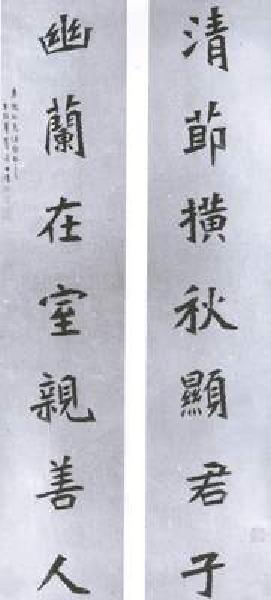 清節橫秋顯君子
幽蘭在室親善人